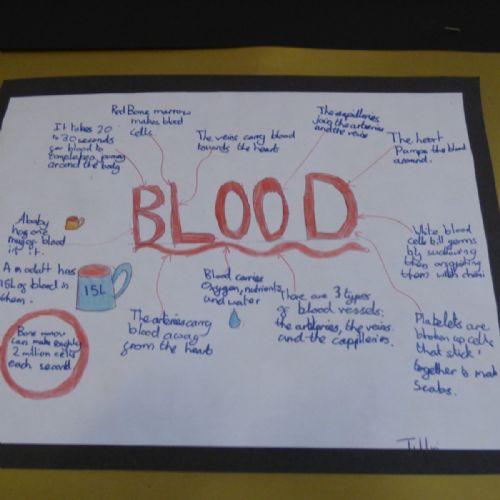 Red Bone marrow
makes blood
cells.
The capilleries
join the arteries
and the veins
It takes 20
to 30 seconds
for blood to
around the body
The veins carry blood
towards the heart
The heart
Pumps the blood
around.
BLOOD
A baby
has one
mug of blood
in it.
An adult has
15L of blood in
them.
15L
White blood
cells kill germs
by
them or
them with
Blood carries
Oxygen, nutrients
and water
There are 3 types
of blood vessels:
the arteries, the veins
and the capilleries.
The arteries carry
blood away
from the heart
Platelets are
broken up cells
that stick
together to make
Scabs.
Bone
can make roughly
2 million cells
each second